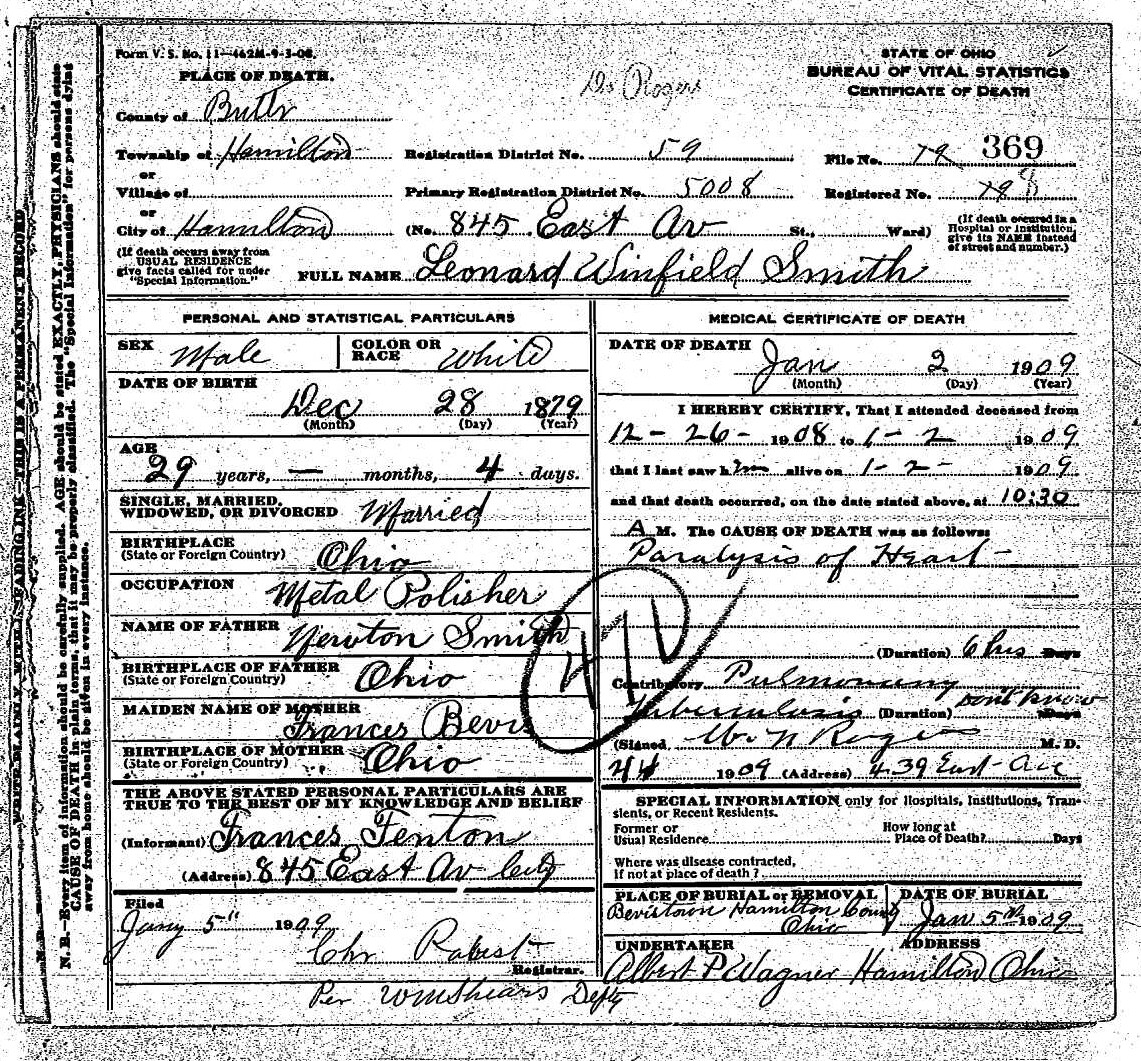 Form V. S. No. 11—462M-9-3-08.
STATE OF OHIO
BUREAU OF VITAL STATISTICS
CERTIFICATE OF DEATH
PLACE OF DEATH.
Dr Rogers
County of Butlr
Township of Hamilton Registration District No. 59 File No. 369
or
Village of Primary Registration District No. 5008 Registered No.
or
City of Hamilton (No. 845 East Av St., Ward)
(If death occurs away from USUAL RESIDENCE give facts called for under "Special Information.")
(If death occured in a Hospital or Institution, give its NAME instead of street and number.)
FULL NAME Leonard Winfield Smith
PERSONAL AND STATISTICAL PARTICULARS
SEX Male COLOR OR RACE White
DATE OF BIRTH
Dec 28 1879
(Month) (Day) (Year)
AGE
29 years, — months, 4 days.
SINGLE, MARRIED, WIDOWED, OR DIVORCED Married
BIRTHPLACE
(State or Foreign Country) Ohio
OCCUPATION Metal Polisher
NAME OF FATHER Newton Smith
BIRTHPLACE OF FATHER
(State or Foreign Country) Ohio
MAIDEN NAME OF MOTHER Frances Bevis
BIRTHPLACE OF MOTHER
(State or Foreign Country) Ohio
THE ABOVE STATED PERSONAL PARTICULARS ARE
TRUE TO THE BEST OF MY KNOWLEDGE AND BELIEF
(Informant) Frances Fenton
(Address) 845 East Av City
Filed
Jany 5" 1909
Chr Pabst
Registrar.
Per Wm Shears Depty
MEDICAL CERTIFICATE OF DEATH
DATE OF DEATH
Jan 2 1909
(Month) (Day) (Year)
I HEREBY CERTIFY, That I attended deceased from
12-26- 1908 to 1-2 1909
that I last saw him alive on 1-2- 1909
and that death occurred, on the date stated above, at 10:30
A M. The CAUSE OF DEATH was as follows:
Paralysis of Heart-
(Duration) 6 hrs Days
Contributory Pulmonary
Tuberculosis (Duration) Dont know Days
(Signed M. D.
1909 (Address) 439 East Ave
SPECIAL INFORMATION only for Hospitals, Institutions, Transients, or Recent Residents.
Former or Usual Residence
How long at Place of Death? Days
Where was disease contracted,
If not at place of death?
PLACE OF BURIAL or REMOVAL
Bevistown Hamilton County
Ohio
DATE OF BURIAL
Jan 5th 1909
UNDERTAKER
Albert P Wagner
ADDRESS
Hamilton Ohio
N. B.—Every item of information should be carefully supplied. AGE should be stated EXACTLY, PHYSICIANS should state
CAUSE OF DEATH in plain terms, that it may be properly classified. The "Special Information" for persons dying
away from home should be given in every instance.